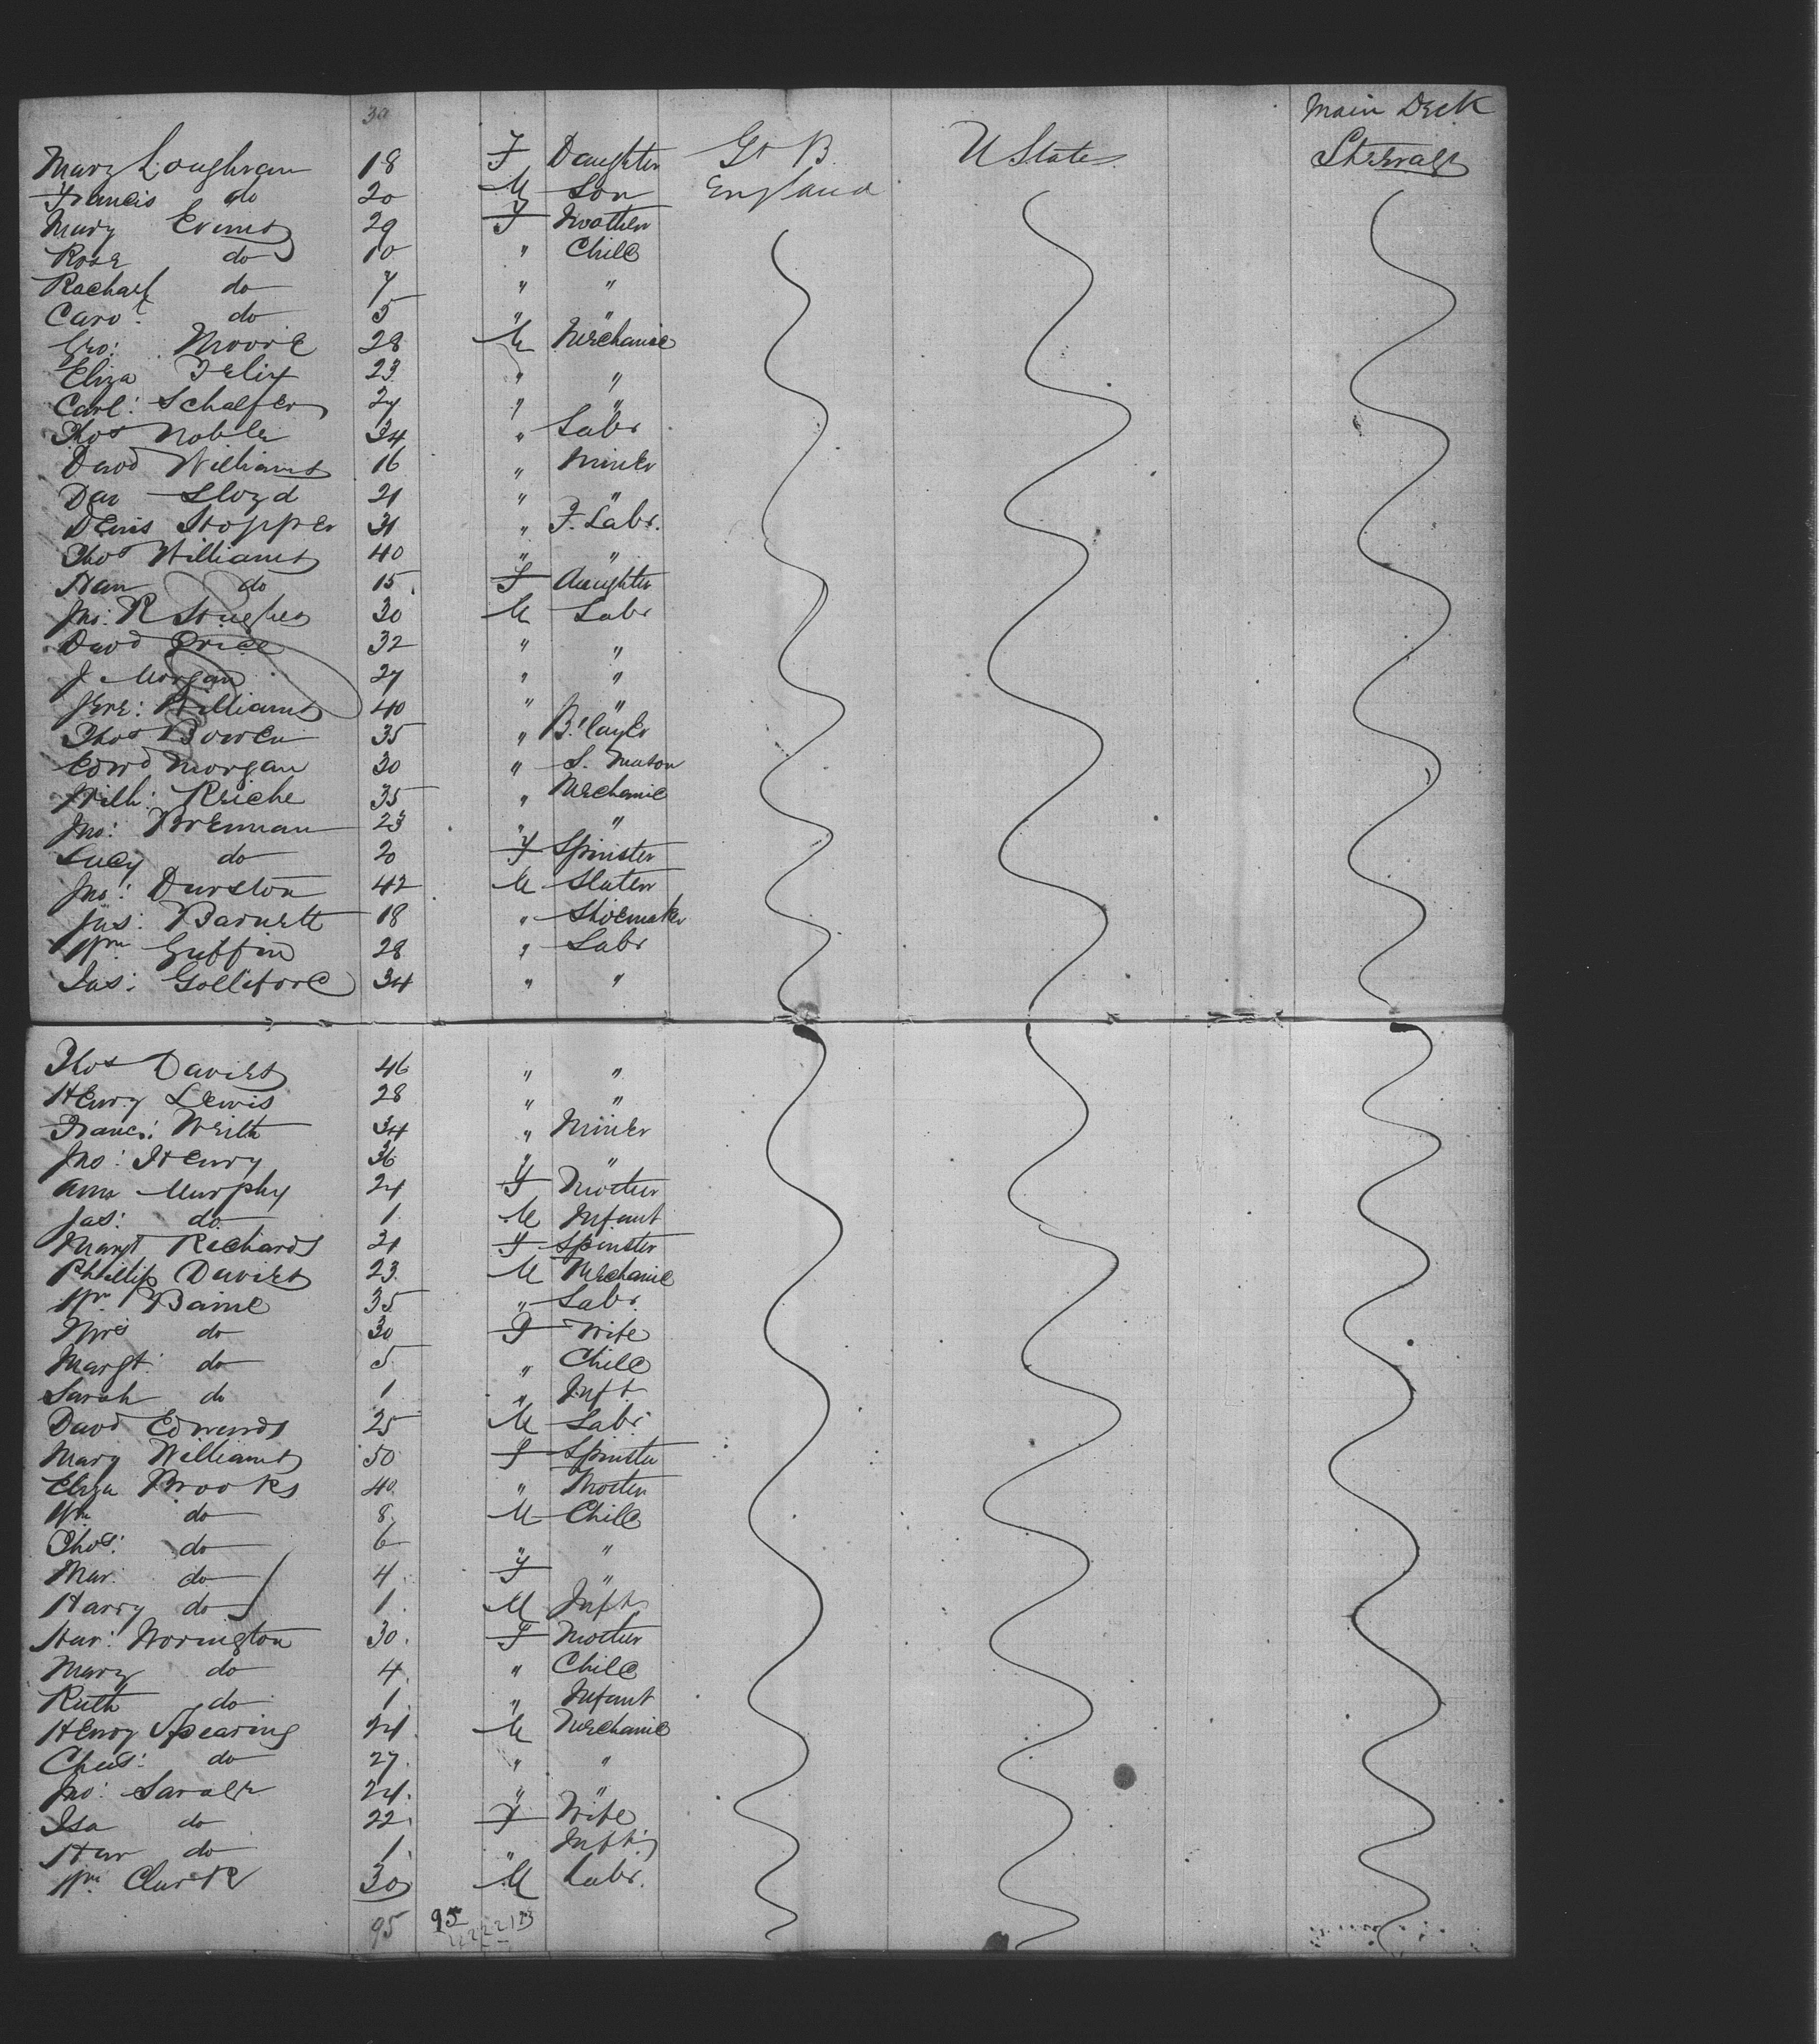 30 Main Deck
Mary Loughran 18 F Daughter Gt B. U States Steerage
Francis do 20 M Son England
Mary Evans 29 F Mother
Rose do 10 " Child
Rachael do 7 " "
Caro: do 5 " "
Geo: Moore 28 M Mechanic
Eliza Felix 23 " "
Carl: Schalfer 27 " "
Thos Noble 34 " Labr
David Williams 16 " Miner
Dan Lloyd 21 " "
Denis Hopper 31 " F. Labr.
Thos Williams 40 " "
Han do 15 F daughter
Jno: R Hughes 30 M Labr
David Price 32 " "
J Morgan 27 " "
Jere: Williams 40 " "
Thos Bowen 35 " B. layer
Edwd Morgan 30 " S. Mason
Will: Reiche 35 " Mechanic
Jno: Brennan 23 " "
Lucy do 20 F Spinster
Jno: Durston 42 M Slater
Jas: Barnett 18 " Shoemaker
Wm Griffin 28 " Labr
Jas: Golliford 34 " "
Thos Davies 46 " "
Henry Lewis 28 " "
Franc: 34 " Miner
Jno: Henry 36 " "
Ann Murphy 24 F Mother
Jas: do 1 M Infant
Margt Richards 21 F Spinster
Phillip Davies 23 M Mechanic
Wm Baine 35 " Labr.
Mrs do 30 F Wife
Margt: do 5 " Child
Sarah do 1 " Inft
David Edwards 25 M Labr
Mary Williams 50 F Spinster
Eliza Brooks 40 " Mother
Wm do 8 M Child
Thos: do 6 " "
Mar: do 4 F "
Harry do 1 M Inft
Har: Worington 30 F Mother
Mary do 4 " Child
Ruth do 1 " Infant
Henry Spearing 24 M Mechanic
Chas: do 27 " "
Jno: 24 " "
Isa do 22 F Wife
Har do 1 " Inft
Wm Clark 30 M Labr.
95 95